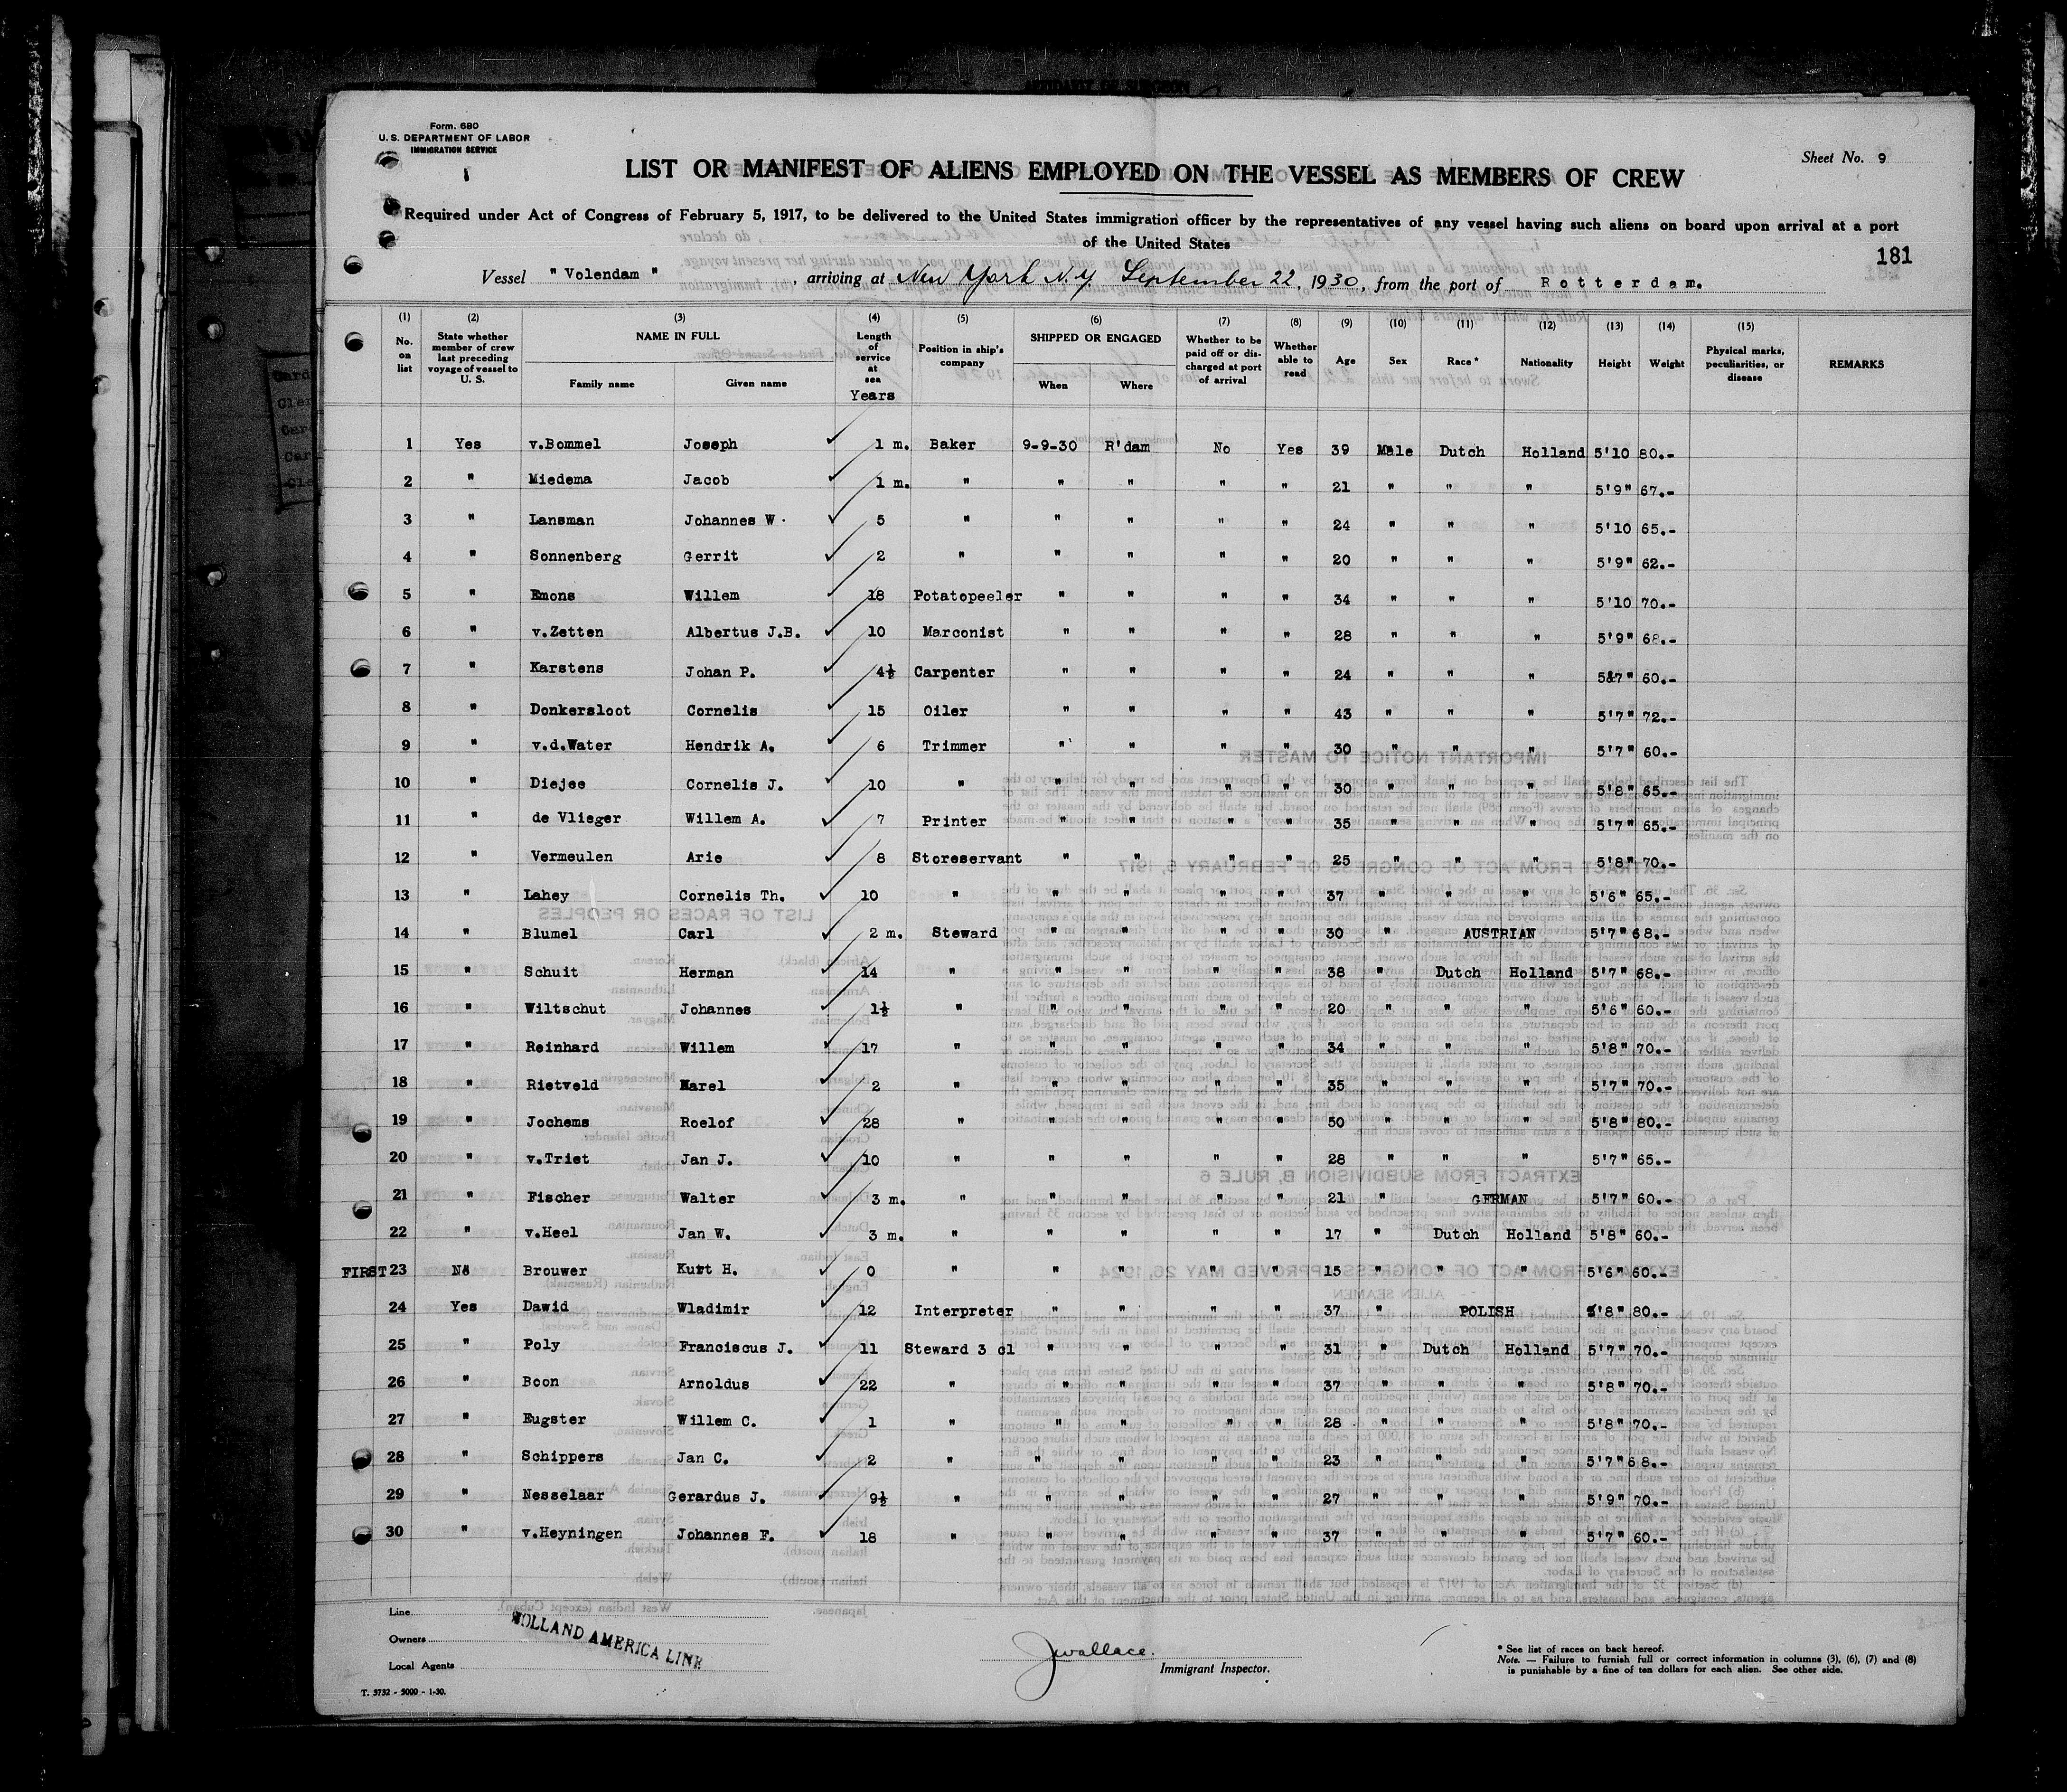 Form. 680
U. S. DEPARTMENT OF LABOR
IMMIGRATION SERVICE
Sheet No. 9
LIST OR MANIFEST OF ALIENS EMPLOYED ON THE VESSEL AS MEMBERS OF CREW
Required under Act of Congress of February 5, 1917, to be delivered to the United States immigration officer by the representatives of any vessel having such aliens on board upon arrival at a port
of the United States
181
Vessel " Volendam ", arriving at New York N.Y. September 22, 1930, from the port of Rotterdam.
(1) No. on list (2) State whether member of crew last preceding voyage of vessel to U. S. (3) NAME IN FULL Family name Given name (4) Length of service at sea Years (5) Position in ship's company (6) SHIPPED OR ENGAGED When Where (7) Whether to be paid off or discharged at port of arrival (8) Whether able to read (9) Age (10) Sex (11) Race * (12) Nationality (13) Height (14) Weight (15) Physical marks, peculiarities, or disease REMARKS
1 Yes v.Bommel Joseph 1 m. Baker 9-9-30 R'dam No Yes 39 Male Dutch Holland 5'10 80.-
2 " Miedema Jacob 1 m. " " " " " 21 " " " 5'9" 67.-
3 " Lansman Johannes W. 5 " " " " " 24 " " " 5'10 65.-
4 " Sonnenberg Gerrit 2 " " " " " 20 " " " 5'9" 62.-
5 " Emons Willem 18 Potatopeeler " " " " 34 " " " 5'10 70.-
6 " v.Zetten Albertus J.B. 10 Marconist " " " " 28 " " " 5'9" 68.-
7 " Karstens Johan P. 4½ Carpenter " " " " 24 " " " 5'7" 60.-
8 " Donkersloot Cornelis 15 Oiler " " " " 43 " " " 5'7" 72.-
9 " v.d.Water Hendrik A. 6 Trimmer " " " " 30 " " " 5'7" 60.-
10 " Diejee Cornelis J. 10 " " " " " 30 " " " 5'8" 65.-
11 " de Vlieger Willem A. 7 Printer " " " " 35 " " " 5'7" 65.-
12 " Vermeulen Arie 8 Storeservant " " " " 25 " " " 5'8" 70.-
13 " Lahey Cornelis Th. 10 " " " " " 37 " " " 5'6" 65.-
14 " Blumel Carl 2 m. Steward " " " " 30 " AUSTRIAN 5'7" 68.-
15 " Schuit Herman 14 " " " " " 38 " Dutch Holland 5'7" 68.-
16 " Wiltschut Johannes 1½ " " " " " 20 " " " 5'6" 60.-
17 " Reinhard Willem 17 " " " " " 34 " " " 5'8" 70.-
18 " Rietveld Karel 2 " " " " " 35 " " " 5'7" 70.-
19 " Jochems Roelof 28 " " " " " 50 " " " 5'8" 80.-
20 " v.Triet Jan J. 10 " " " " " 28 " " " 5'7" 65.-
21 " Fischer Walter 3 m. " " " " " 21 " GERMAN 5'7" 60.-
22 " v.Heel Jan W. 3 m. " " " " " 17 " Dutch Holland 5'8" 60.-
FIRST 23 No Brouwer Kurt H. 0 " " " " " 15 " " " 5'6" 60.-
24 Yes Dawid Wladimir 12 Interpreter " " " " 37 " POLISH 5'8" 80.-
25 " Poly Franciscus J. 11 Steward 3 cl " " " " 31 " Dutch Holland 5'7" 70.-
26 " Boon Arnoldus 22 " " " " " 37 " " " 5'8" 70.-
27 " Eugster Willem C. 1 " " " " " 28 " " " 5'8" 70.-
28 " Schippers Jan C. 2 " " " " " 23 " " " 5'7" 68.-
29 " Nesselaar Gerardus J. 9½ " " " " " 27 " " " 5'9" 70.-
30 " v.Heyningen Johannes F. 18 " " " " " 37 " " " 5'7" 60.-
Line
Owners
Local Agents
HOLLAND AMERICA LINE
T. 3732 - 5000 - 1-30.
J Wallace.
Immigrant Inspector.
* See list of races on back hereof.
Note. — Failure to furnish full or correct information in columns (3), (6), (7) and (8)
is punishable by a fine of ten dollars for each alien. See other side.